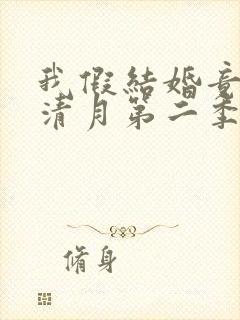 我假結婚
清月第二季
脩身